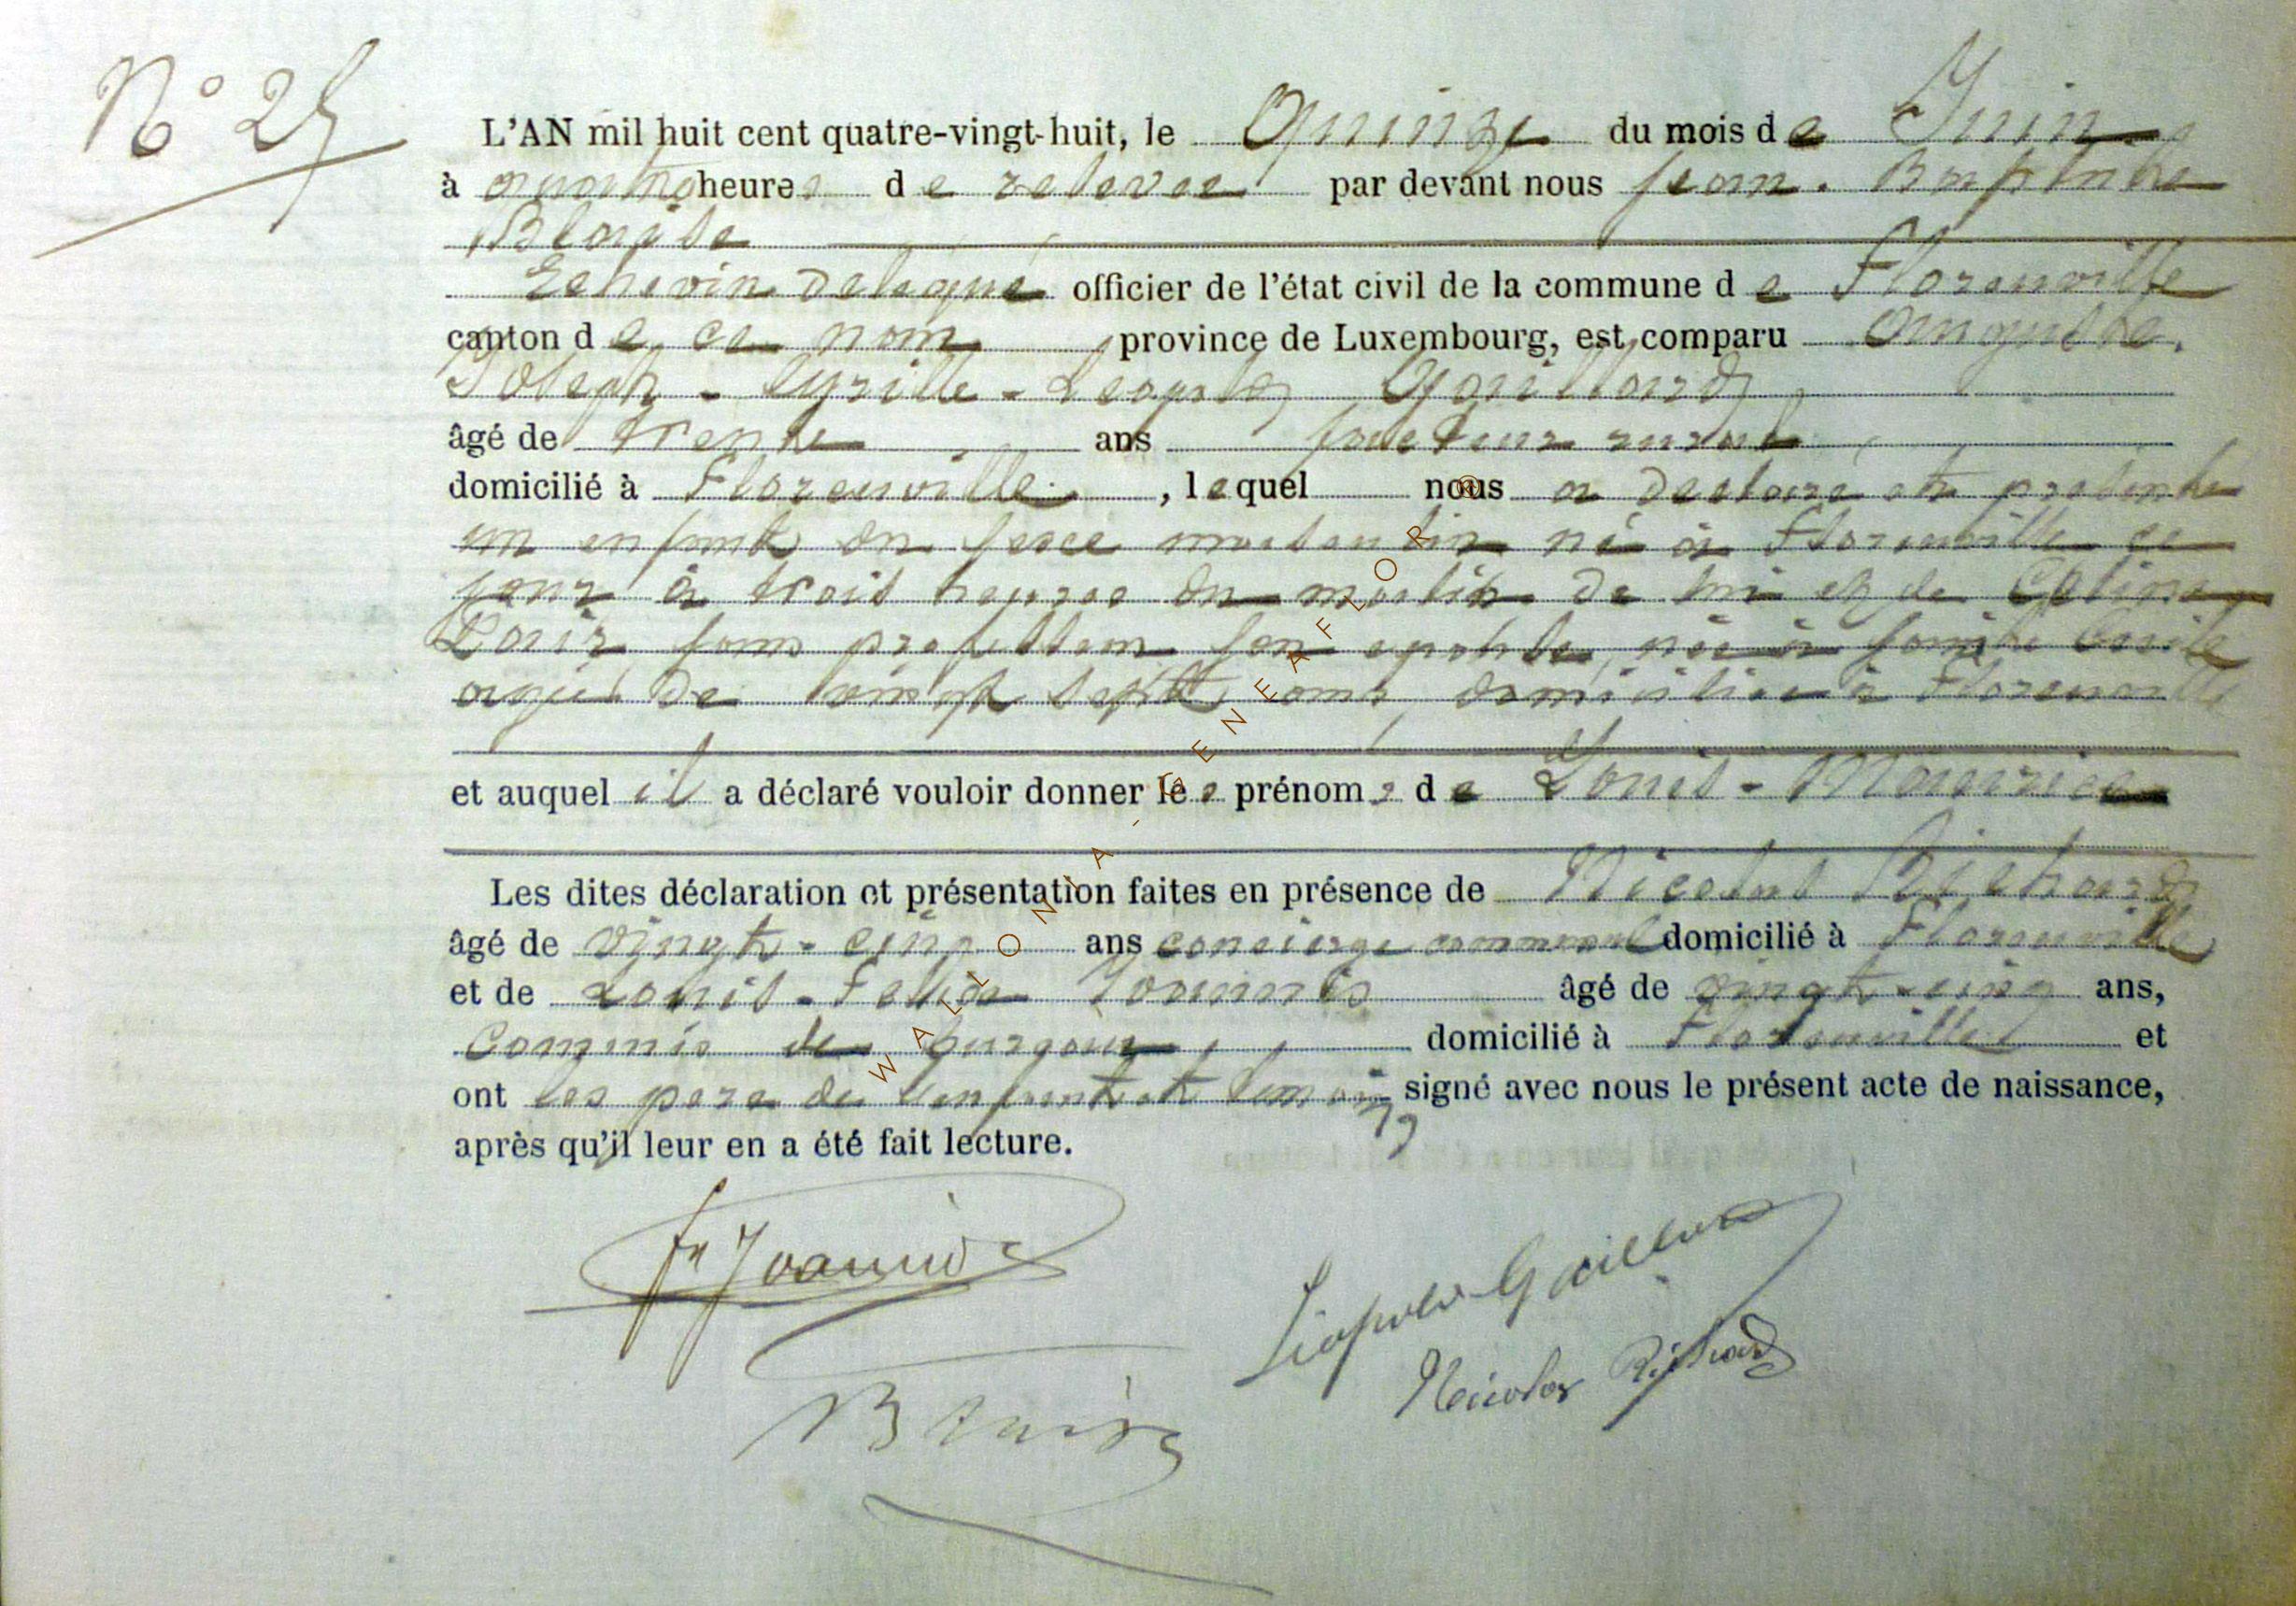 N° 25
L'AN mil huit cent quatre-vingt-huit, le Quinze du mois de Juin
à quatre heures de relevée par devant nous Jean-Baptiste
Blaise
Echevin délégué officier de l'état civil de la commune de Florenville
canton de ce nom province de Luxembourg, est comparu Auguste
Joseph - Cyrille - Léopold Gaillard
âgé de trente ans facteur rural
domicilié à Florenville, lequel nous a déclaré et présenté
un enfant du sexe masculin né à Florenville ce
jour à trois heures du matin de lui et de Celine
sans profession son épouse, née à Sainte Cécile
agée de vingt sept ans, domiciliée à Florenville
et auquel il a déclaré vouloir donner les prénoms de Louis - Maurice
Les dites déclaration et présentation faites en présence de Nicolas Richard
âgé de vingt-cinq ans concierge communal domicilié à Florenville
et de Louis - Joannès âgé de vingt-cinq ans,
commis de bureau, domicilié à Florenville et
ont les père de l'enfant et témoins signé avec nous le présent acte de naissance,
après qu'il leur en a été fait lecture.
Léopold Gaillard
Nicolas Richard
WALLONIA - GENEAFLOR ®